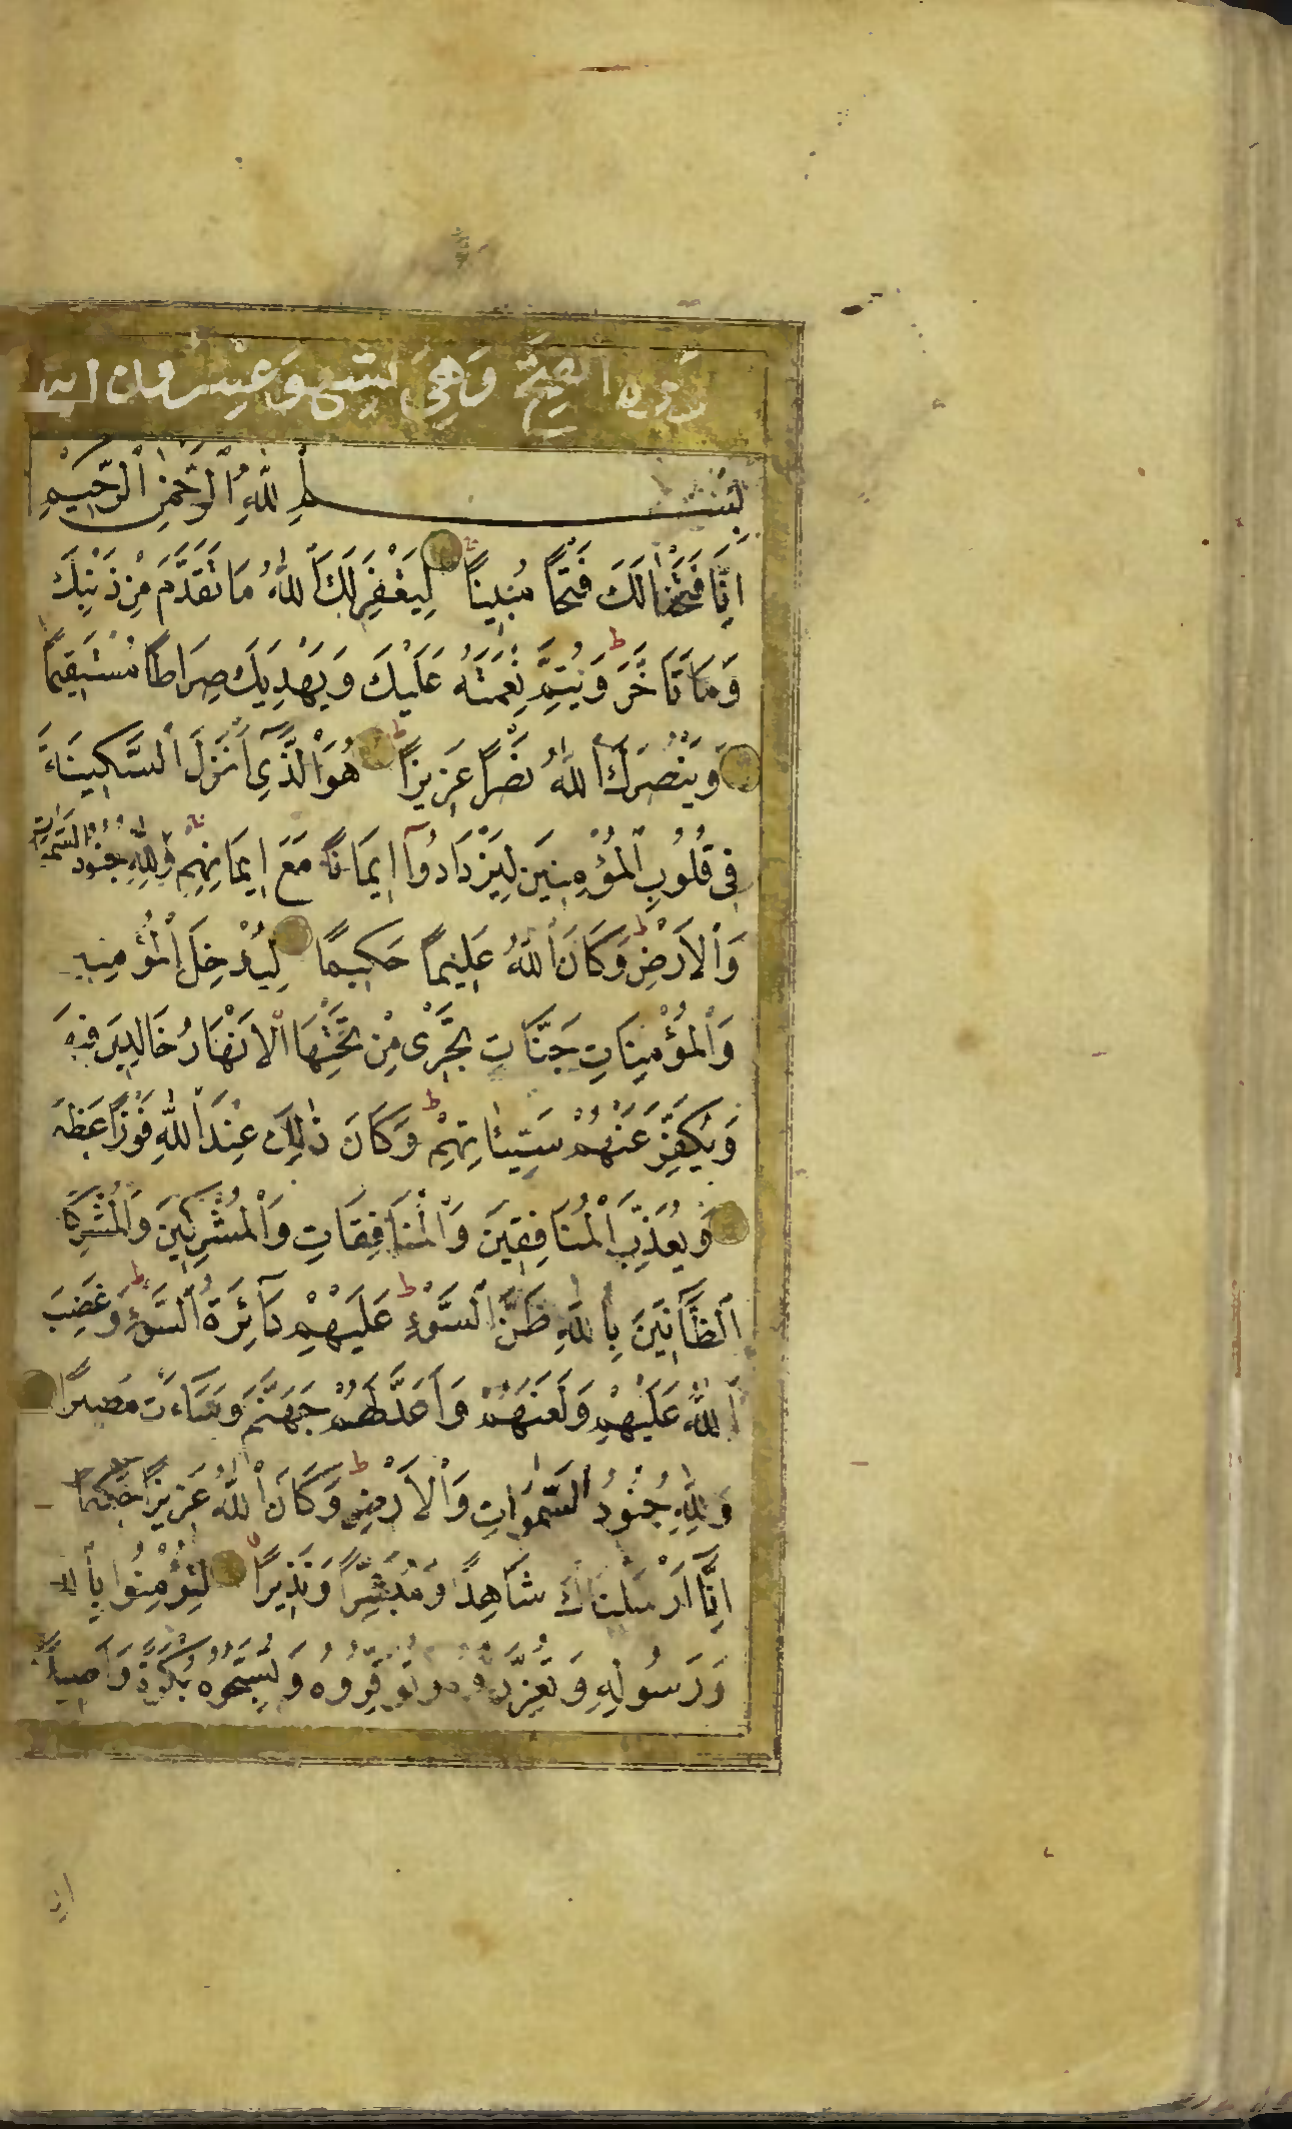 سورة الفتح وهي تسع وعشرون اية
بِسْمِ اللّٰهِ الرَّحْمٰنِ الرَّحِيمِ
اِنَّا فَتَحْنَا لَكَ فَتْحًا مُبِينًا لِيَغْفِرَ لَكَ اللّٰهُ مَا تَقَدَّمَ مِنْ ذَنْبِكَ
وَمَا تَاَخَّرَ ط وَيُتِمَّ نِعْمَتَهُ عَلَيْكَ وَيَهْدِيَكَ صِرَاطًا مُسْتَقِيمًا
وَيَنْصُرَكَ اللّٰهُ نَصْرًا عَزِيزًا ط هُوَ الَّذِي اَنْزَلَ السَّكِينَةَ
فِي قُلُوبِ الْمُؤْمِنِينَ لِيَزْدَادُوا اِيمَانًا مَعَ اِيمَانِهِمْ وَلِلّٰهِ جُنُودُ السَّمٰوَاتِ
وَالْاَرْضِ ط وَكَانَ اللّٰهُ عَلِيمًا حَكِيمًا لِيُدْخِلَ الْمُؤْمِنِين
وَالْمُؤْمِنَاتِ جَنَّاتٍ تَجْرِي مِنْ تَحْتِهَا الْاَنْهَارُ خَالِدِينَ فِيهَا
وَيُكَفِّرَ عَنْهُمْ سَيِّئَاتِهِمْ ط وَكَانَ ذٰلِكَ عِنْدَ اللّٰهِ فَوْزًا عَظِيمًا
وَيُعَذِّبَ الْمُنَافِقِينَ وَالْمُنَافِقَاتِ وَالْمُشْرِكِينَ وَالْمُشْرِكَاتِ
الظَّانِّينَ بِاللّٰهِ ظَنَّ السَّوْءِ ط عَلَيْهِمْ دَائِرَةُ السَّوْءِ ط وَغَضِبَ
اللّٰهُ عَلَيْهِمْ وَلَعَنَهُمْ وَاَعَدَّ لَهُمْ جَهَنَّمَ وَسَاءَتْ مَصِيرًا
وَلِلّٰهِ جُنُودُ السَّمٰوَاتِ وَالْاَرْضِ ط وَكَانَ اللّٰهُ عَزِيزًا حَكِيمًا
اِنَّا اَرْسَلْنَاكَ شَاهِدًا وَمُبَشِّرًا وَنَذِيرًا لِتُؤْمِنُوا بِاللّٰهِ
وَرَسُولِهِ وَتُعَزِّرُوهُ وَتُوَقِّرُوهُ وَتُسَبِّحُوهُ بُكْرَةً وَاَصِيلًا
ان